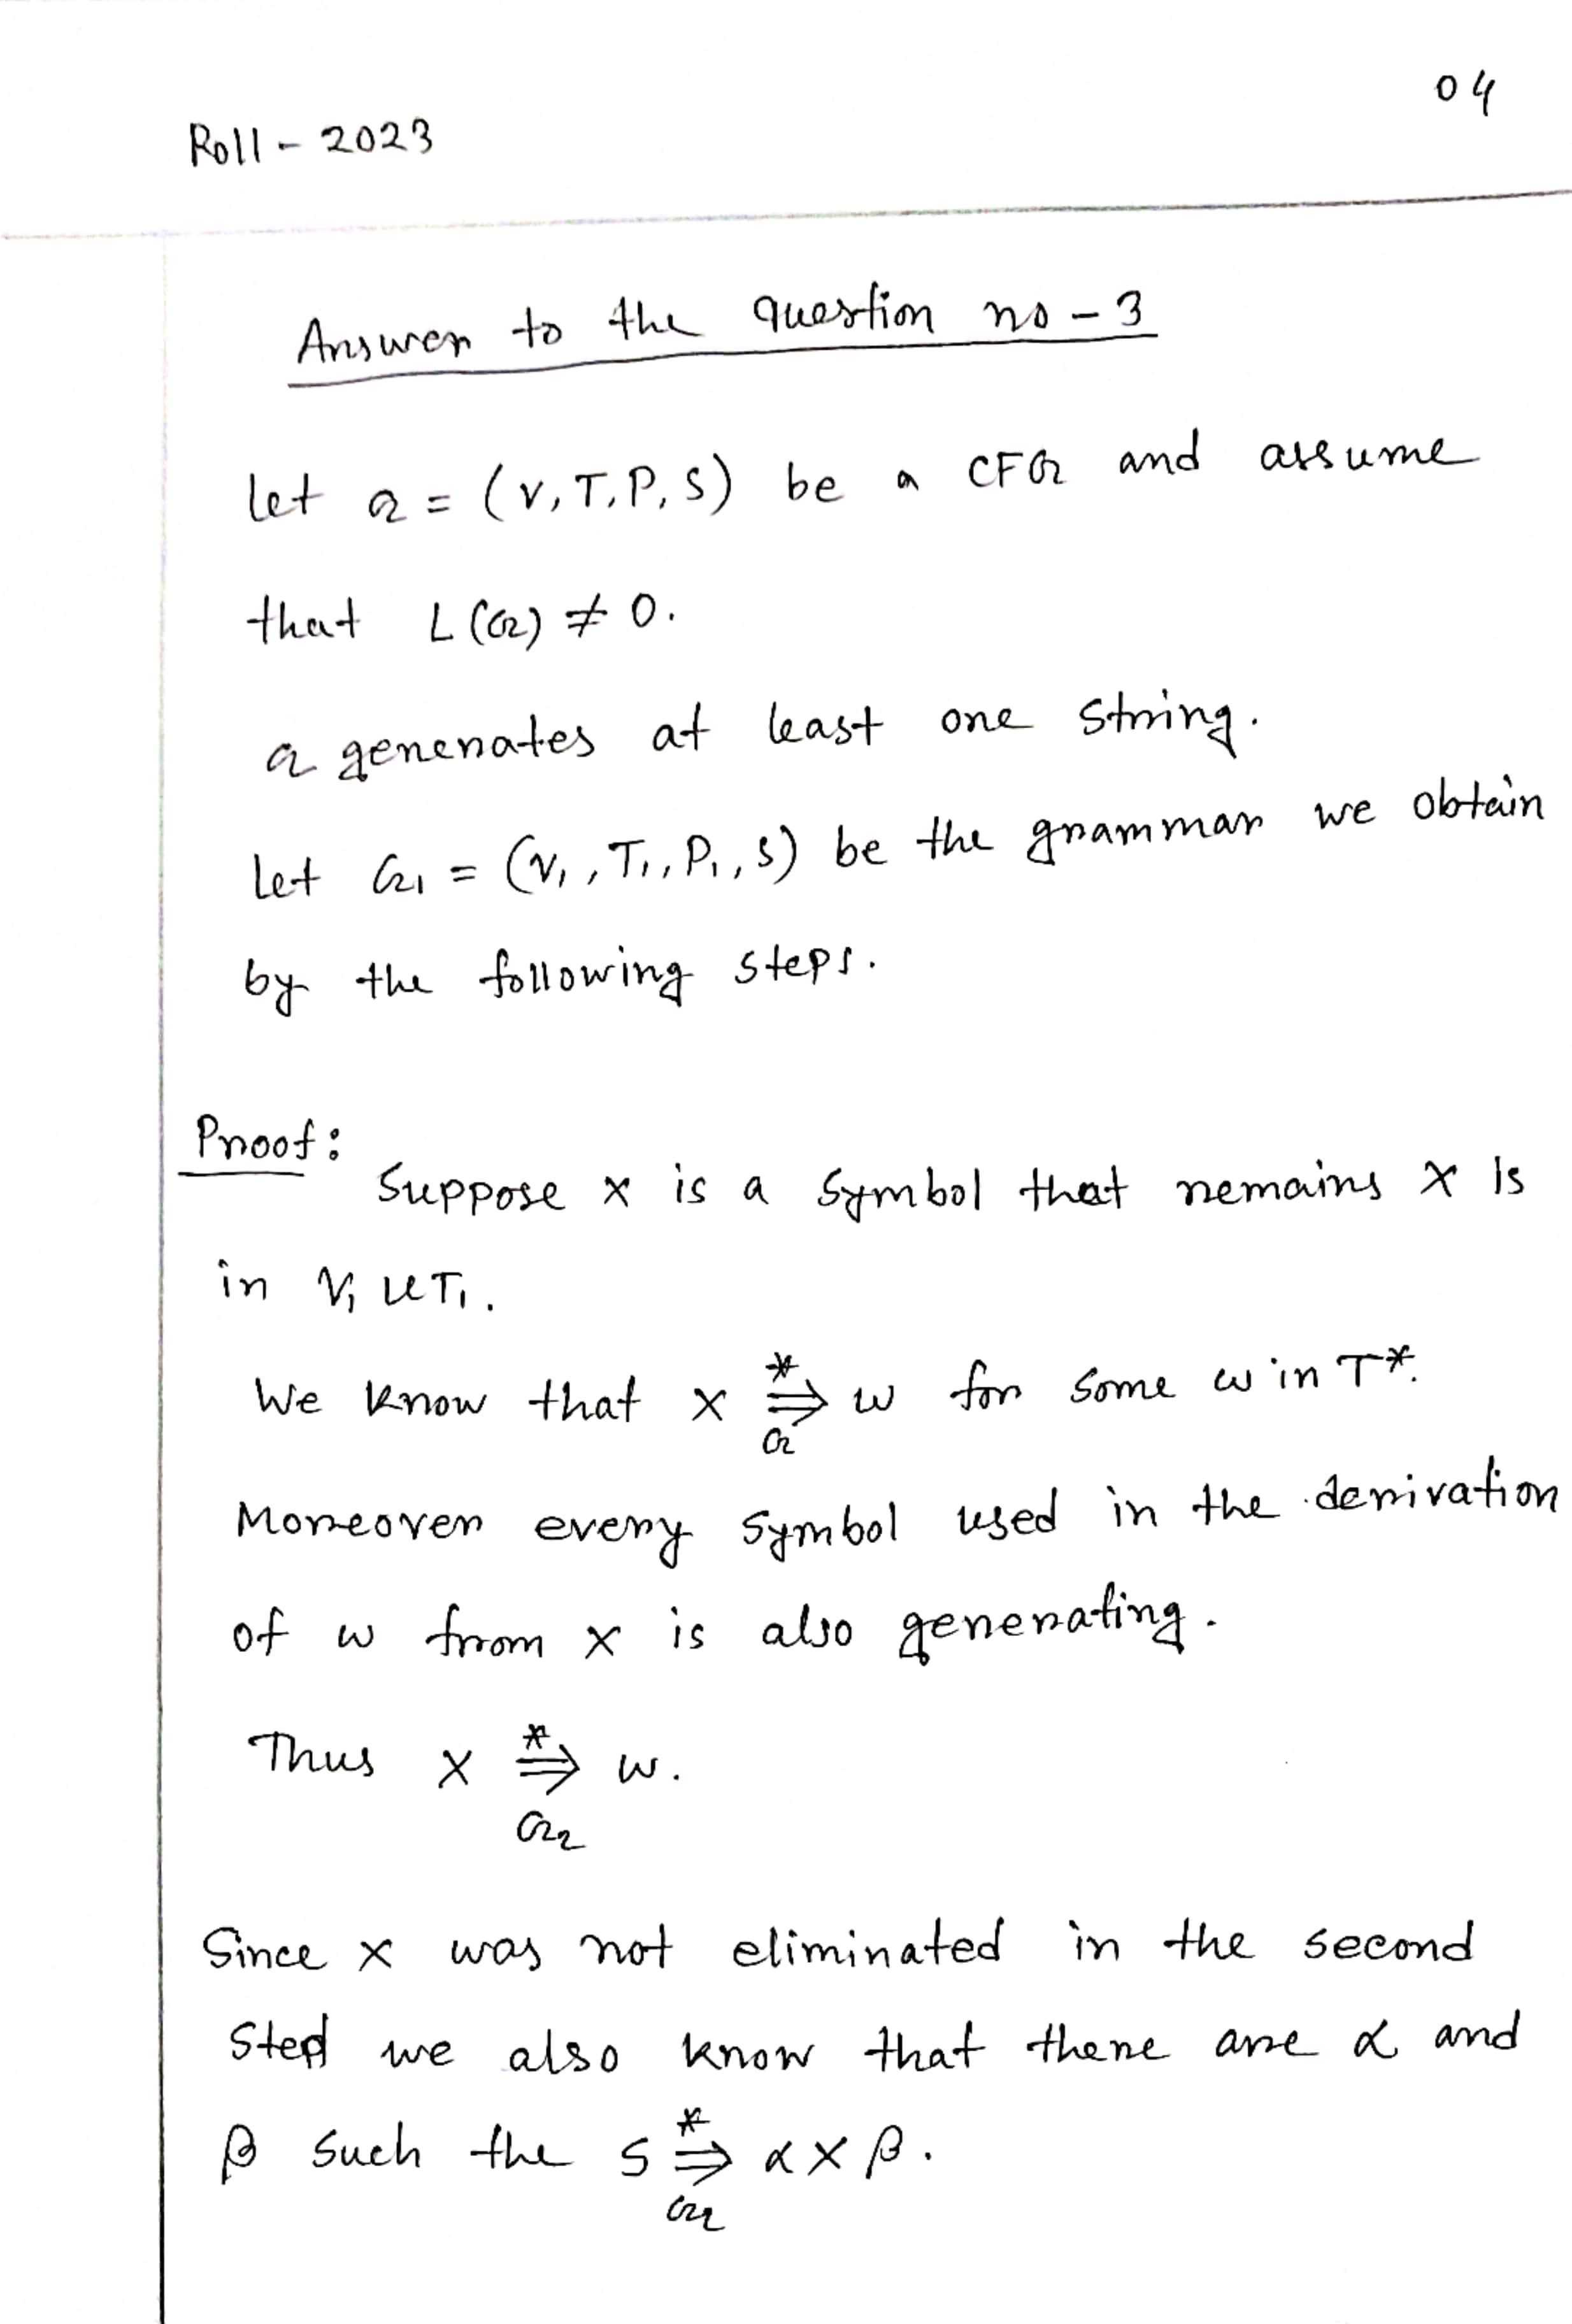 04
Roll - 2023
Answer to the question no - 3
let G = (V, T, P, S) be a CFG and assume
that L(G) ≠ 0.
G generates at least one string.
Let G₁ = (V₁, T₁, P₁, S) be the grammar we obtain
by the following steps.
Proof:
Suppose x is a symbol that remains x is
in V₁ ∪ T₁.
We know that x ⇒ w for some w in T*.
*
G
Moreover every symbol used in the derivation
of w from x is also generating.
Thus x ⇒ w.
*
G₂
Since x was not eliminated in the second
step we also know that there are α and
β such the S ⇒ α x β.
*
G₂